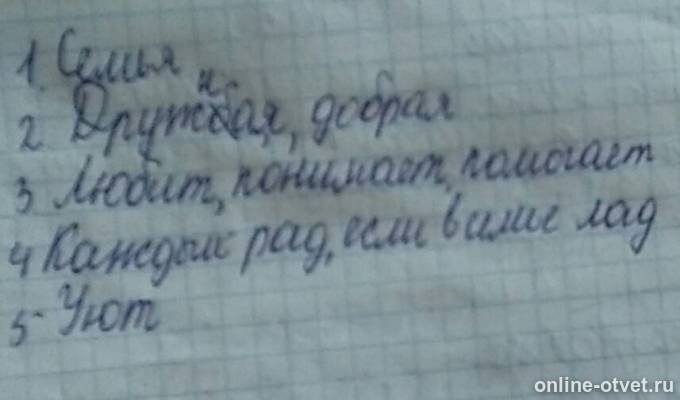 1 Семья
2 Дружная, добрая
3 Любит, понимает, помогает
4 Каждый рад, если в семье лад
5 Уют
online-otvet.ru